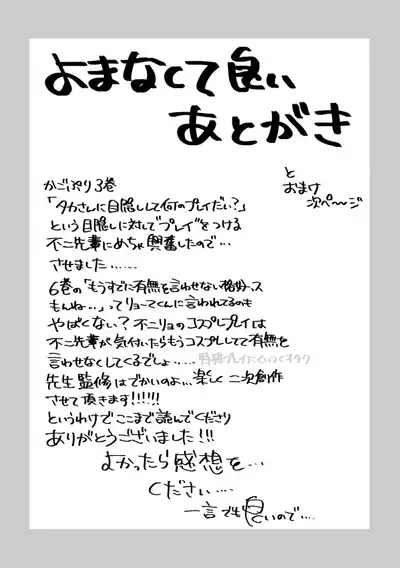 よまなくて良い
あとがき
と
おまけ
次ペ〜ジ
かごぷり3巻
「タカさんに目隠しして何のプレイだい?」
という目隠しに対して"プレイ"をつける
不二先輩にめちゃ興奮したので…
させました……
6巻の「もうすでに有無を言わせない格好っス
もんね…」ってリョーマくんに言われてるのも
やばくない?不二リョのコスプレプレイは
不二先輩が気付いたらもうコスプレしてて有無を
言わせなくしてくるでしょ……特殊プレイにくいつくオタク
先生監修はでかいのよ…楽しく二次創作
させて頂きます!!!!!!
というわけでここまで読んでくださり
ありがとうございました!!!
よかったら感想を…
ください…
一言でも良いので…